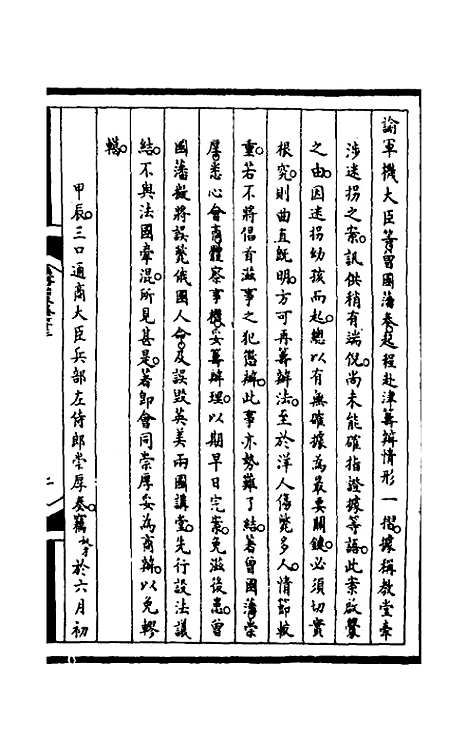 諭軍機大臣等曾國藩奏起程赴津籌辦情形一摺。據稱教堂牽
涉迷拐之案。訊供稍有端倪。尚未能確指證據等語。此案啟釁
之由。因迷拐幼孩而起。總以有無確據為最要關鍵。必須切實
根究。則曲直既明。方可再籌辦法。至於洋人傷斃多人。情節較
重。若不將倡首滋事之犯懲辦。此事亦勢難了結。著曾國藩崇
厚。悉心會商。體察事機。妥籌辦理。以期早日完案。免滋後患。曾
國藩擬將誤斃俄國人命。及誤毀英美兩國講堂。先行設法議
結。不與法國牽混。所見甚是。著即會同崇厚。妥為商辦。以免轇
轕。
甲辰。三口通商大臣兵部左侍郎崇厚奏。竊奴才於六月初
二